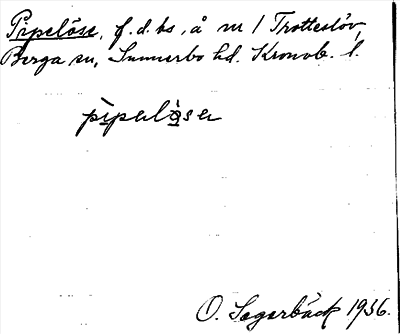 Pipelöse, f.d. bs, å m / Trotteslöv,
Berga sn, Sunnerbo hd. Kronob. l.
pìpelö̀sa
O. Sagerbäck 1936.